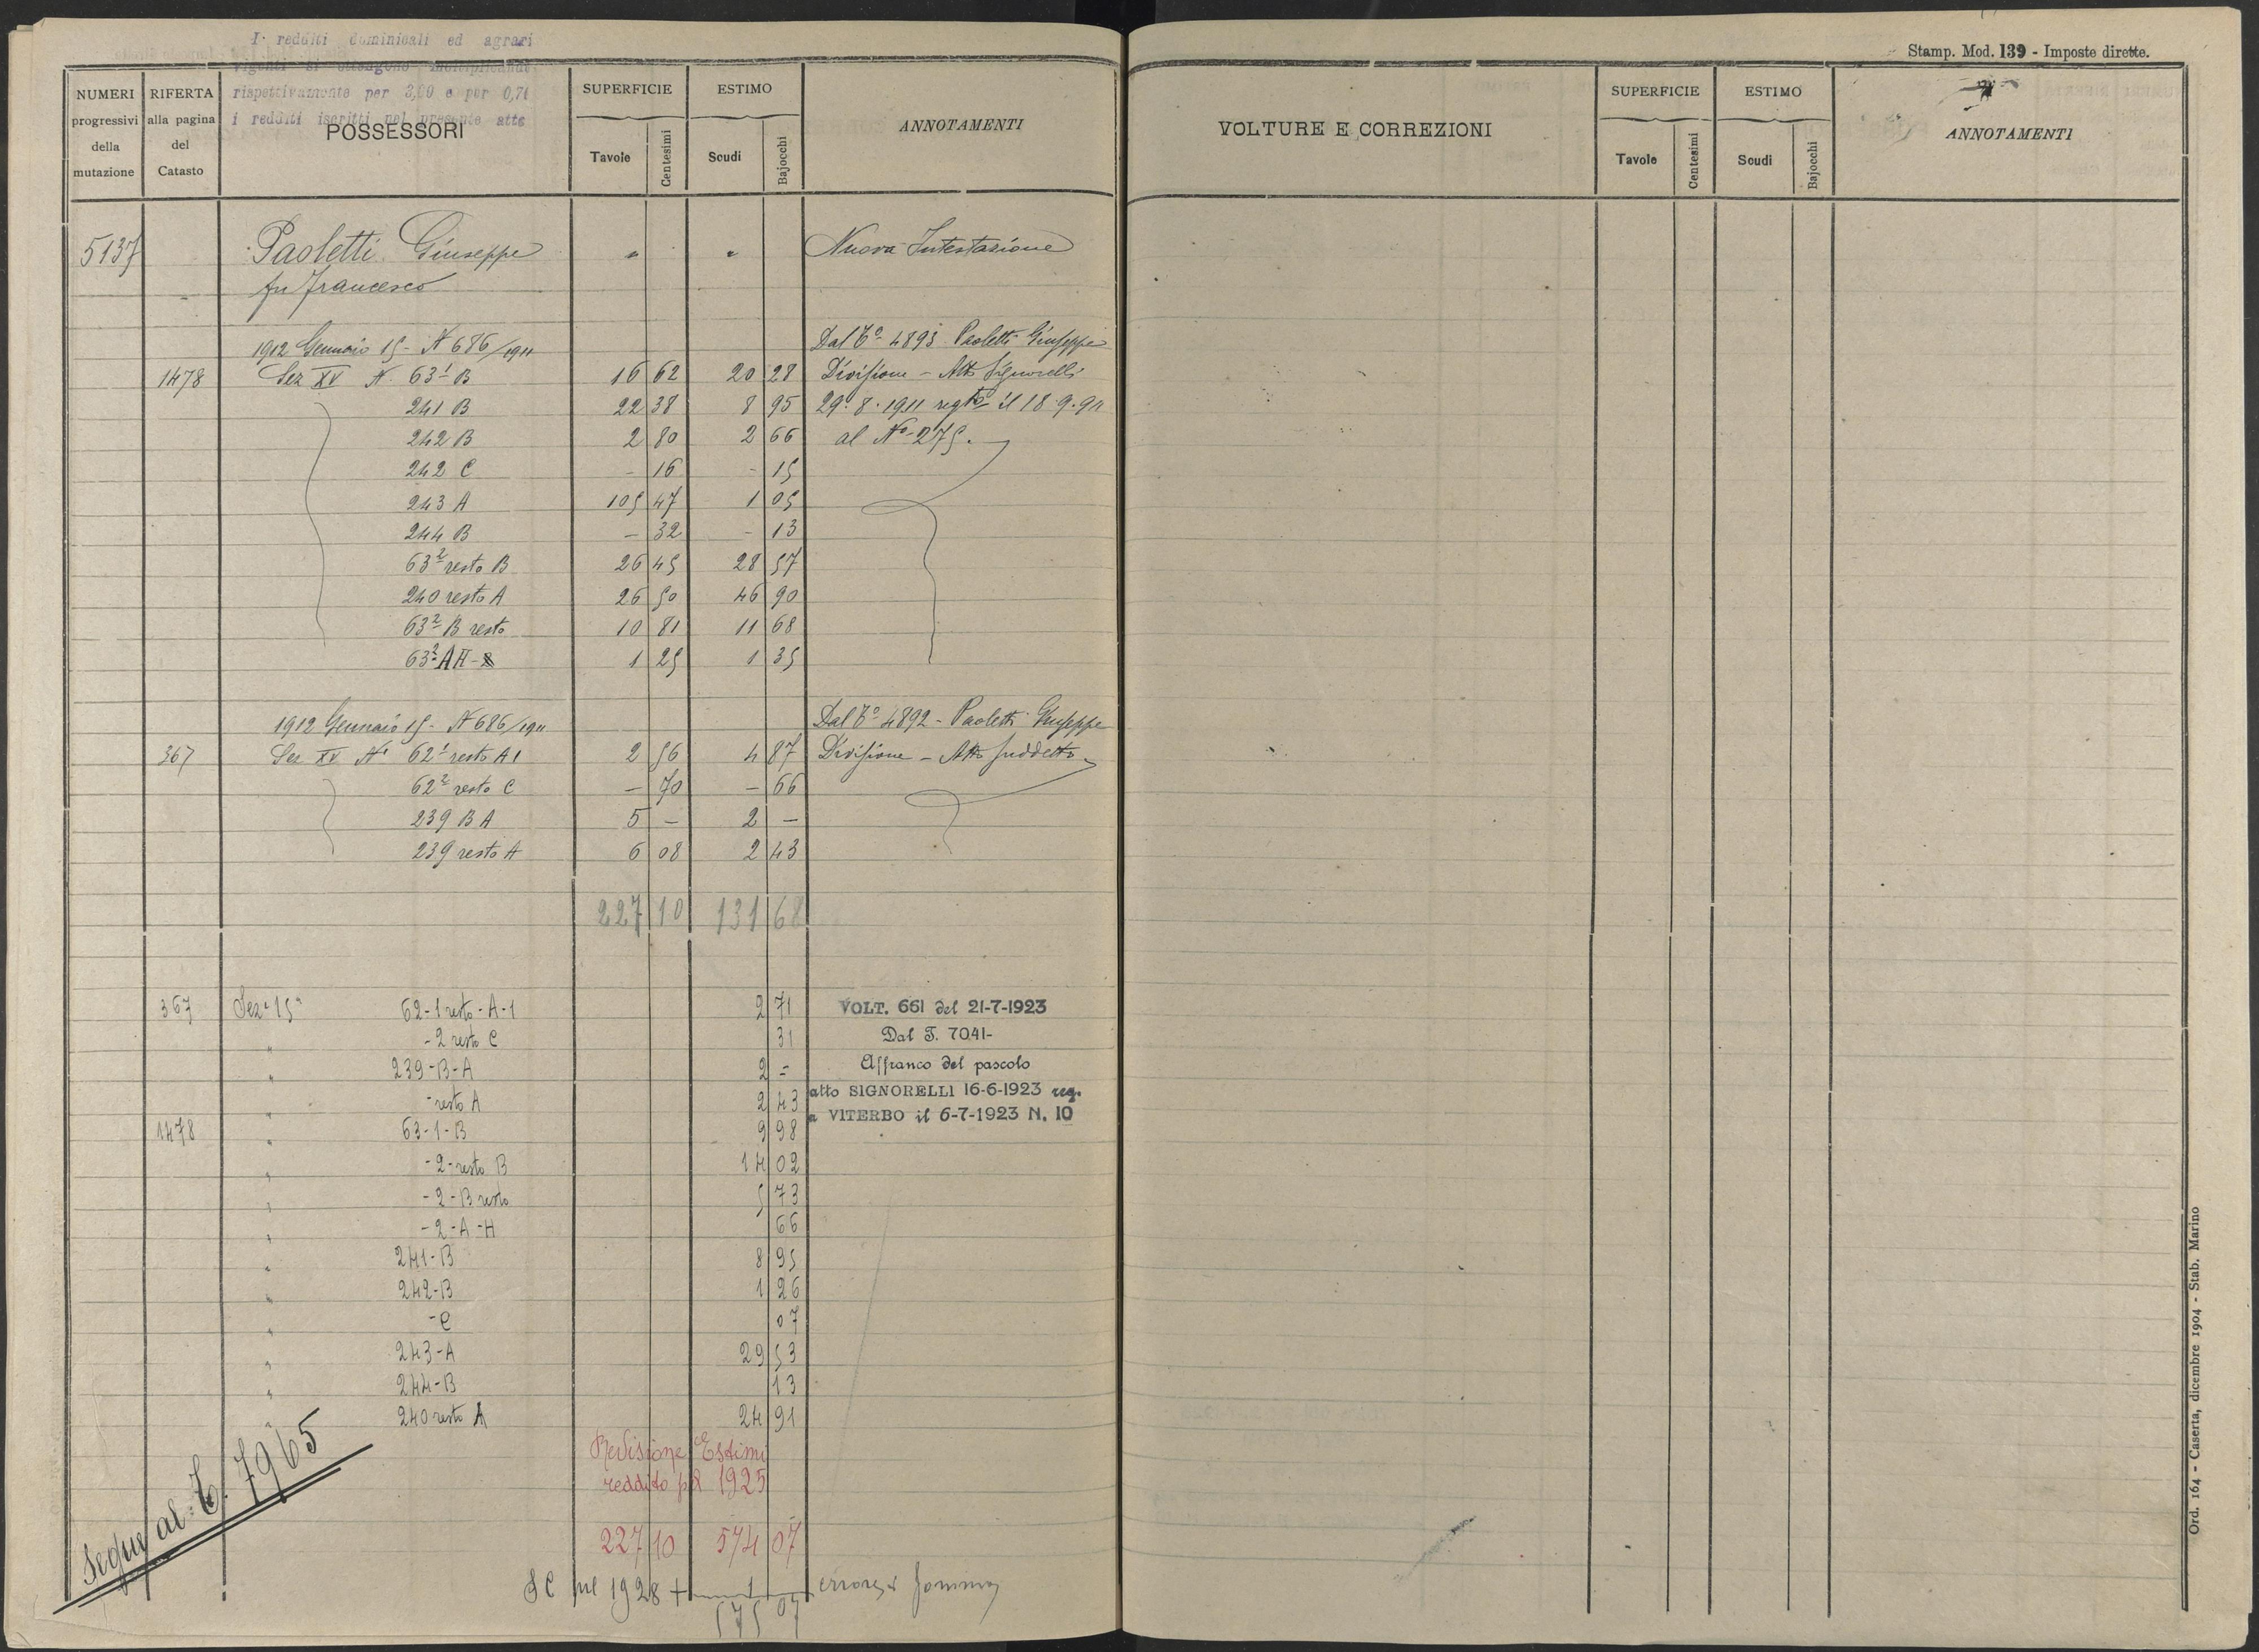 I redditi dominicali ed agrari
vigenti si ottengono moltiplicando
rispettivamente per 3,00 e per 0,71
i redditi iscritti nel presente atto
Stamp. Mod. 139 - Imposte dirette.
NUMERI progressivi della mutazione
RIFERTA alla pagina del Catasto
POSSESSORI
SUPERFICIE
Tavole Centesimi
ESTIMO
Scudi Bajocchi
ANNOTAMENTI
VOLTURE E CORREZIONI
SUPERFICIE
Tavole Centesimi
ESTIMO
Scudi Bajocchi
ANNOTAMENTI
5137 Paoletti Giuseppe " " Nuova Intestazione
fu Francesco
1912 Gennaio 15 - N 686/1911 Dal T° 4893 Paoletti Giuseppe
1478 Sez XV N. 63¹ B 16 62 20 28 Divisione - Atto Signorelli
241 B 22 38 8 95 29.8.1911 regto il 18.9.911
242 B 2 80 2 66 al N° 275.
242 C - 16 - 15
243 A 105 47 1 05
244 B - 32 - 13
63² resto B 26 45 28 57
240 resto A 26 50 46 90
63² B resto 10 81 11 68
63² A H 1 25 1 35
1912 Gennaio 15 - N 686/1911 Dal T° 4892 - Paoletti Giuseppe
367 Sez XV N¹ 62¹ resto A1 2 56 4 87 Divisione - Atto suddetto
62² resto C - 70 - 66
239 B A 5 - 2 -
239 resto A 6 08 2 43
227 10 131 68
367 Sez 15ª 62-1 resto-A-1 2 71 VOLT. 661 del 21-7-1923
" -2 resto C 31 Dal T. 7041-
" 239-B-A 2 = Affranco del pascolo
" -resto A 2 43 atto SIGNORELLI 16-6-1923 reg.
a VITERBO il 6-7-1923 N. 10
1478 " 63-1-B 9 98
" -2-resto B 14 02
" -2-B resto 5 73
" -2-A-H 66
" 241-B 8 95
" 242-B 1 26
" -C 07
" 243-A 29 53
" 244-B 13
" 240 resto A 24 91
Revisione Estimi
reddito pel 1925
227 10 574 07
Segue al T. 7965
SC pel 1928 + 1 errore somma
575 07
Ord. 164 - Caserta, dicembre 1904 - Stab. Marino